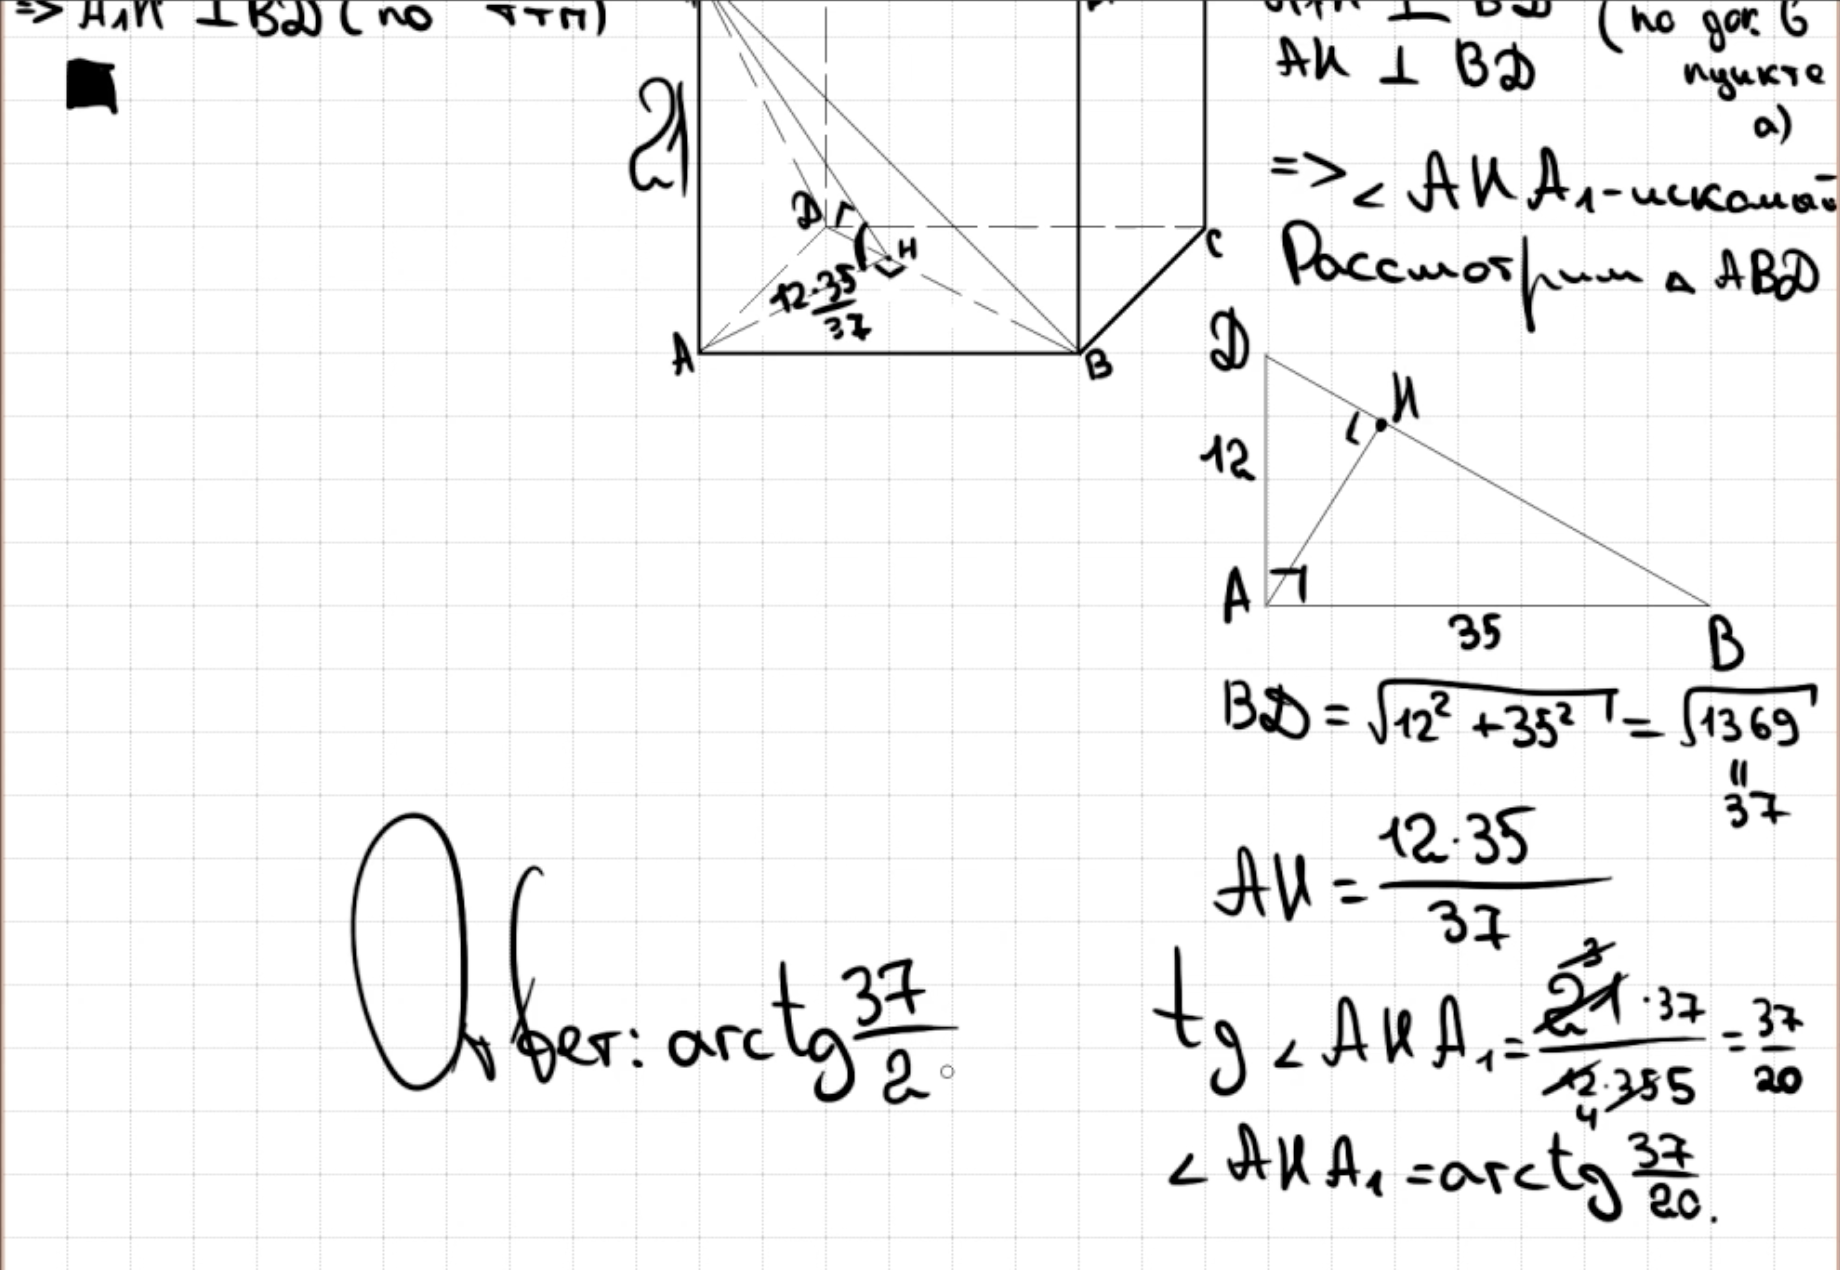 => A₁H ⊥ BD (по ТТП)
21
D
H
12·35
37
A
B
C
A₁H ⊥ BD (по док. в
AH ⊥ BD пункте
а)
=> ∠AHA₁ - искомый
Рассмотрим △ABD
D
H
12
A
35
B
BD = √12² + 35² = √1369
=
37
AH = 12·35/37
tg ∠AHA₁ = 21·37/12·35 = 37/20
3
4
5
∠AHA₁ = arctg 37/20.
Ответ: arctg 37/2